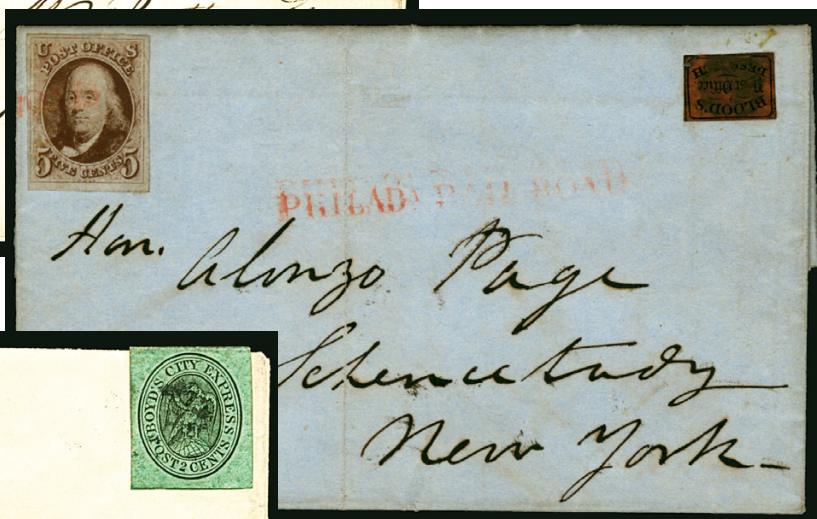 U S
POST OFFICE
FIVE CENTS
5 5
BLOOD'S
Post Office
DESPATCH
PHILADA RAIL ROAD
Hon.
Alonzo Page
Schenectady
New York
BOYD'S CITY EXPRESS
POST 2 CENTS